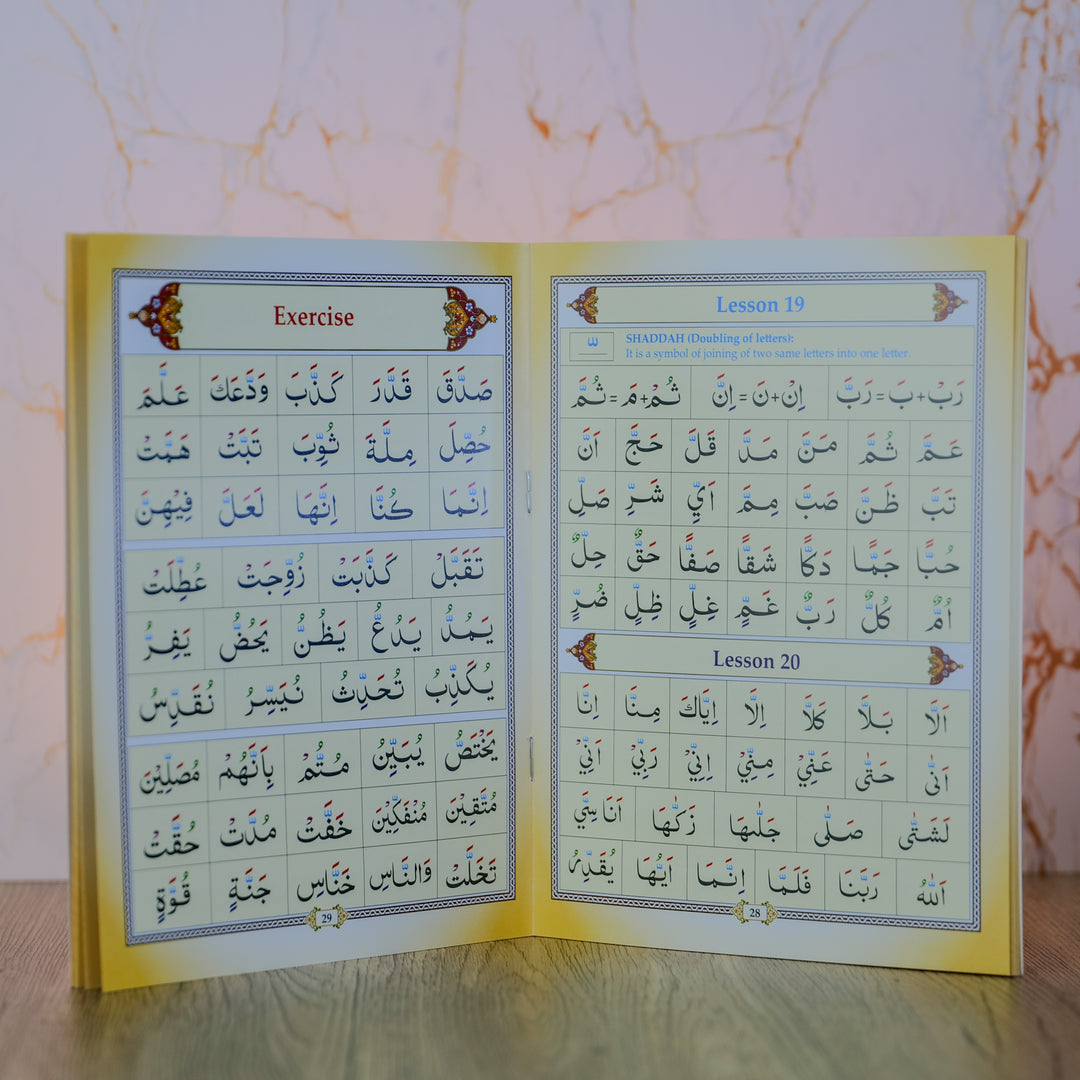 Lesson 19
SHADDAH (Doubling of letters):
It is a symbol of joining of two same letters into one letter.
رَبْ+بَ=رَبَّ اِنْ+نَ=اِنَّ ثُمْ+مَ=ثُمَّ
عَمَّ ثُمَّ مَنَّ مَدَّ قَلَّ حَجَّ اَنَّ
تَبَّ ظَنَّ صَبَّ مِمَّ اَيِّ شَرِّ صَلِّ
حُبًّا جَمًّا دَكًّا شَقًّا صَفًّا حَقٌّ حِلٌّ
اُمٌّ كُلٌّ رَبٌّ غَمٍّ غِلٍّ ظِلٍّ ضُرٍّ
Lesson 20
اَلَّا بَلَّا كَلَّا اِلَّا اِيَّاكَ مِنَّا اِنَّا
اَنّٰى حَتّٰى عَنِّيْ مِنِّيْ اِنِّيْ رَبِّيْ اَنِّيْ
لَشَتّٰى صَلّٰى جَلّٰىهَا زَكّٰىهَا اَنَاسِيَّ
اَللّٰهُ رَبَّنَا فَلَمَّا اِنَّمَا اَيُّهَا يُقَدِّرُ
28
Exercise
صَدَّقَ قَدَّرَ كَذَّبَ وَدَّعَكَ عَلَّمَ
حُصِّلَ مِلَّةَ ثُوِّبَ تَبَّتْ هَمَّتْ
اِنَّمَا كُنَّا اِنَّهَا لَعَلَّ فِيْهِنَّ
تَقَبَّلْ كَذَّبَتْ زُوِّجَتْ عُطِّلَتْ
يَمُدُّ يَدُعُّ يَظُنُّ يَحُضُّ يَفِرُّ
يُكَذِّبُ تُحَدِّثُ نُيَسِّرُ نُقَدِّسُ
يَخْتَصُّ يُبَيِّنُ مُتُّمْ بِاَنَّهُمْ مُصَلِّيْنَ
مُتَّقِيْنَ مُنْفَكِّيْنَ خَفَّتْ مُدَّتْ حُقَّتْ
تَخَلَّتْ وَالنَّاسِ خَنَّاسِ جَنَّةٍ قُوَّةٍ
29